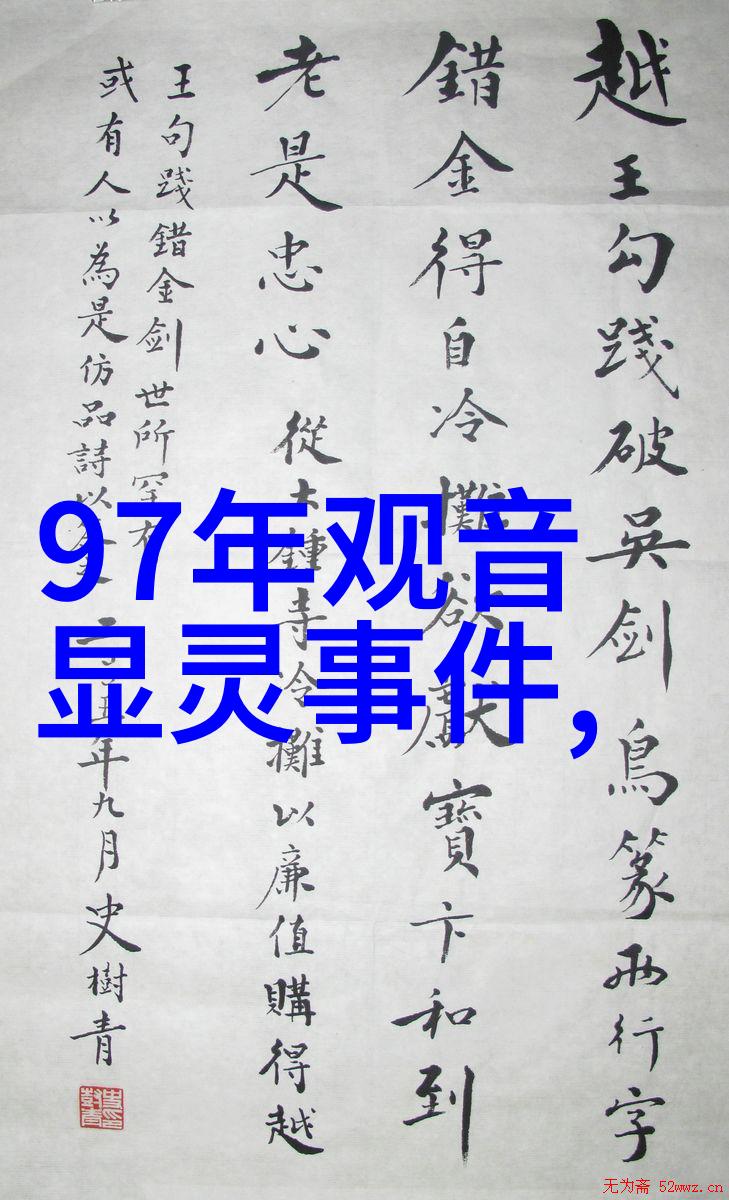 越王勾踐破吳劍鳥篆兩行字
錯金得自冷攤欲獻寶卞和到
老是忠心 從大鐘寺冷攤以廉值購得越
王句踐錯金劍世所罕有
或有人以為是仿品詩以 五年九月史樹青
97年观音
显灵事件,
无为斋 52wwz.cn